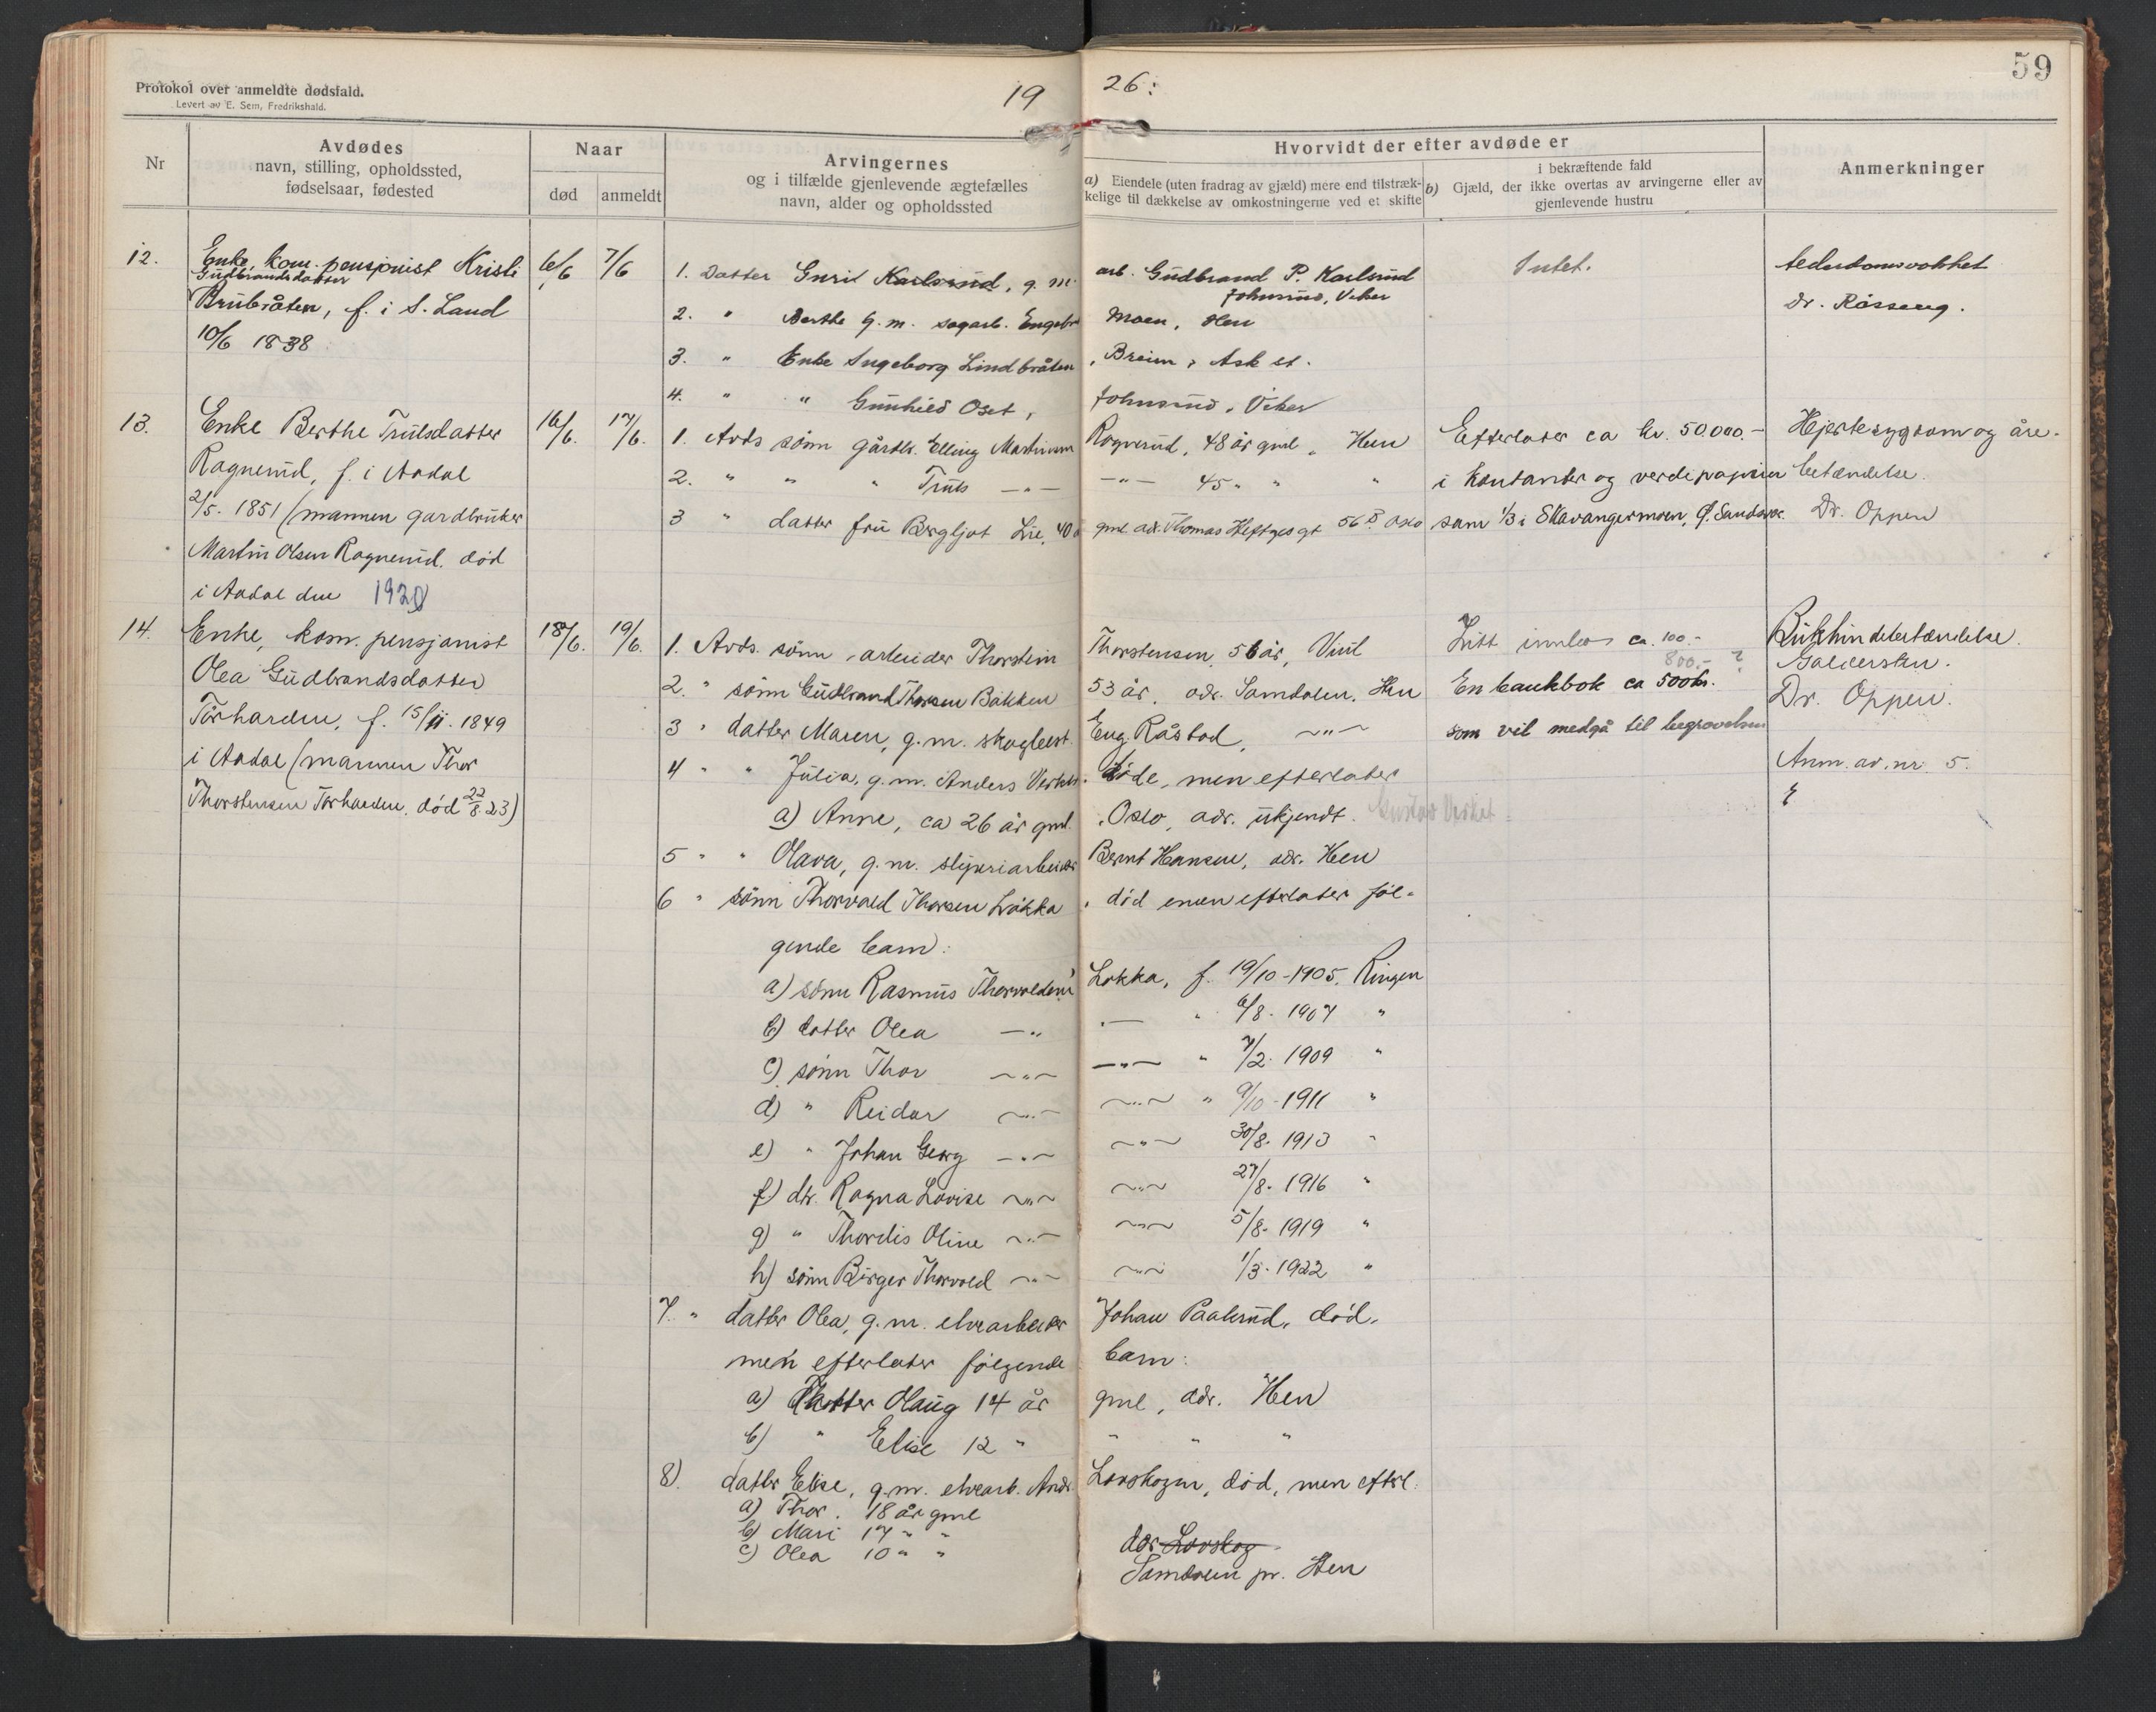 Protokol over anmeldte dødsfald.
Levert av E. Sem, Fredrikshald.
19 26:
59
Nr
Avdødes
navn, stilling, opholdssted,
fødselsaar, fødested
Naar
død
anmeldt
Arvingernes
og i tilfælde gjenlevende ægtefælles
navn, alder og opholdssted
Hvorvidt der efter avdøde er
a) Eiendele (uten fradrag av gjæld) mere end tilstræk-
kelige til dækkelse av omkostningerne ved et skifte
i bekræftende fald
b) Gjæld, der ikke overtas av arvingerne eller av
gjenlevende hustru
Anmerkninger
12.
Enke, kom. pensjonist Kristi
Gudbrandsdatter
Brubråten, f. i S. Land
10/6 1838
6/6
7/6
1. Datter Guril Karlsrud, g. m. arb. Gudbrand P. Karlsrud
Johnsrud, Viker
2. " Berthe g. m. sagarb. Engebr. Moen, Hen
3. " Enke Ingeborg Lindbråten, Breim, Ask st.
4. " " Gunhild Oset, Johnsrud, Viker
Intet.
Alderdomssvakhet
Dr. Råsseng.
13.
Enke Berthe Trulsdatter
Ragnerud, f. i Aadal
2/5. 1851 (mannen gardbruker
Martin Olsen Ragnerud, død
i Aadal den 1920)
16/6.
17/6.
1. Avds sønn gårdbr. Elling Martinsen Ragnerud, 48 år gml. Hen
2. " " " Truls —"— —"— 45 " " "
3 " datter fru Bergljot Lie, 40 å gml. adr. Thomas Heftyes gt 56 B Oslo
Efterlater ca kr. 50.000.-
i kontanter og verdipapirer
sam 1/3 i Skavangermoen, S. Sandsvær
Hjertesygdom og åre-
betændelse.
Dr. Oppen
14.
Enke, kom. pensjonist
Olea Gudbrandsdatter
Tørhaugen, f. 15/11. 1849
i Aadal (mannen Thor
Thorstensen Tørhaugen, død 22/8 23)
18/6.
19/6.
1. Avds. sønn arbeider Thorstein Thorstensen, 56 år, Viul
2. " sønn Gudbrand Thorsen Bakken 53 år. adr. Samdalen, Hen
3 " datter Maren, g.m. skogbest. Eng. Råstad, —"—
4 " " Julia, g.m. Anders Verket. døde, men efterlater
a) Anne, ca 26 år gml. Oslo, adr. ukjendt. Gustav Verket
5 " " Olava, g.m. sliperiarbeider Bernt Hansen, adr. Hen
6 " sønn Thorvald Thorsen Løkka, død men efterlater føl-
gende barn:
a) sønn Rasmus Thorvaldsen Løkka, f. 19/10-1905, Ringen
b) datter Olea —"— " 6/8. 1907 "
c) sønn Thor —"— —"— " 7/2. 1909 "
d) " Reidar —"— —"— " 9/10-1911 "
e) " Johan Georg —"— —"— 30/8. 1913 "
f) dtr. Ragna Lovise —"— —"— 27/8. 1916 "
g) " Thordis Oline —"— —"— 5/8. 1919 "
h) sønn Birger Thorvald —"— —"— 1/3. 1922 "
7. " datter Olea, g.m. elvearbeider Johan Paalsrud, død,
men efterlater følgende barn:
a) Datter Olaug 14 år gml, adr. Hen
b) " Elise 12 " " " "
8). datter Elise, g.m. elvearb. Andr. Lovskogen, død, men efterl.
a) Thor. 18 år gml
b) Mari 17 " "
c) Olea 10 " "
adr Lovskog
Samdalen pr. Hen
Litt innbo ca. 100.-
800.- ?
En bankbok ca 500 kr.
som vil medgå til begravelsen
Bukhindebetændelse.
Galdesten.
Dr. Oppen.
Anm. av. nr 5.